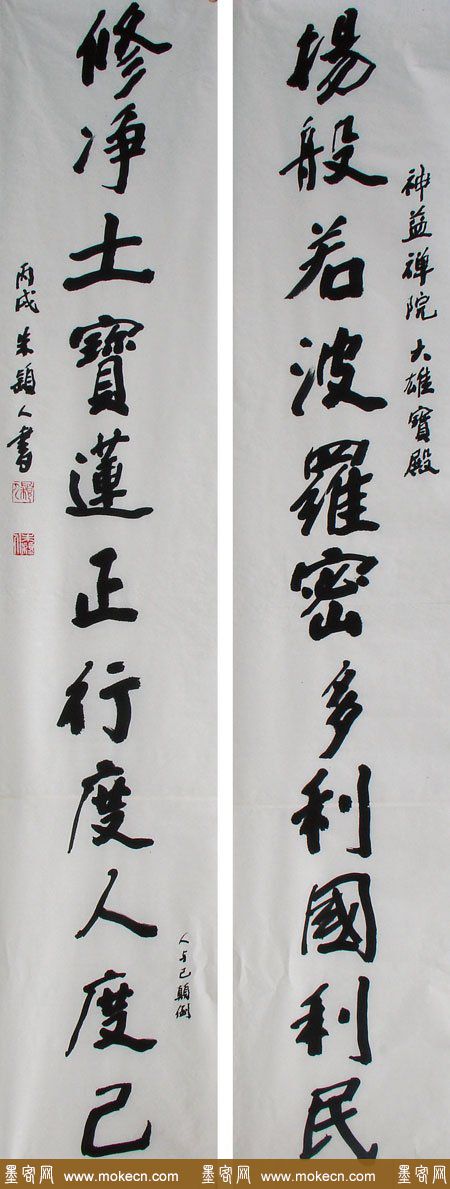 神益禅院 大雄寶殿
揚般若波羅密多利國利民
人与己顛倒
修净土寶蓮正行度人度己
丙戌 朱穎人書
墨客网 www.mokecn.com 墨客网 www.mokecn.com 墨客网